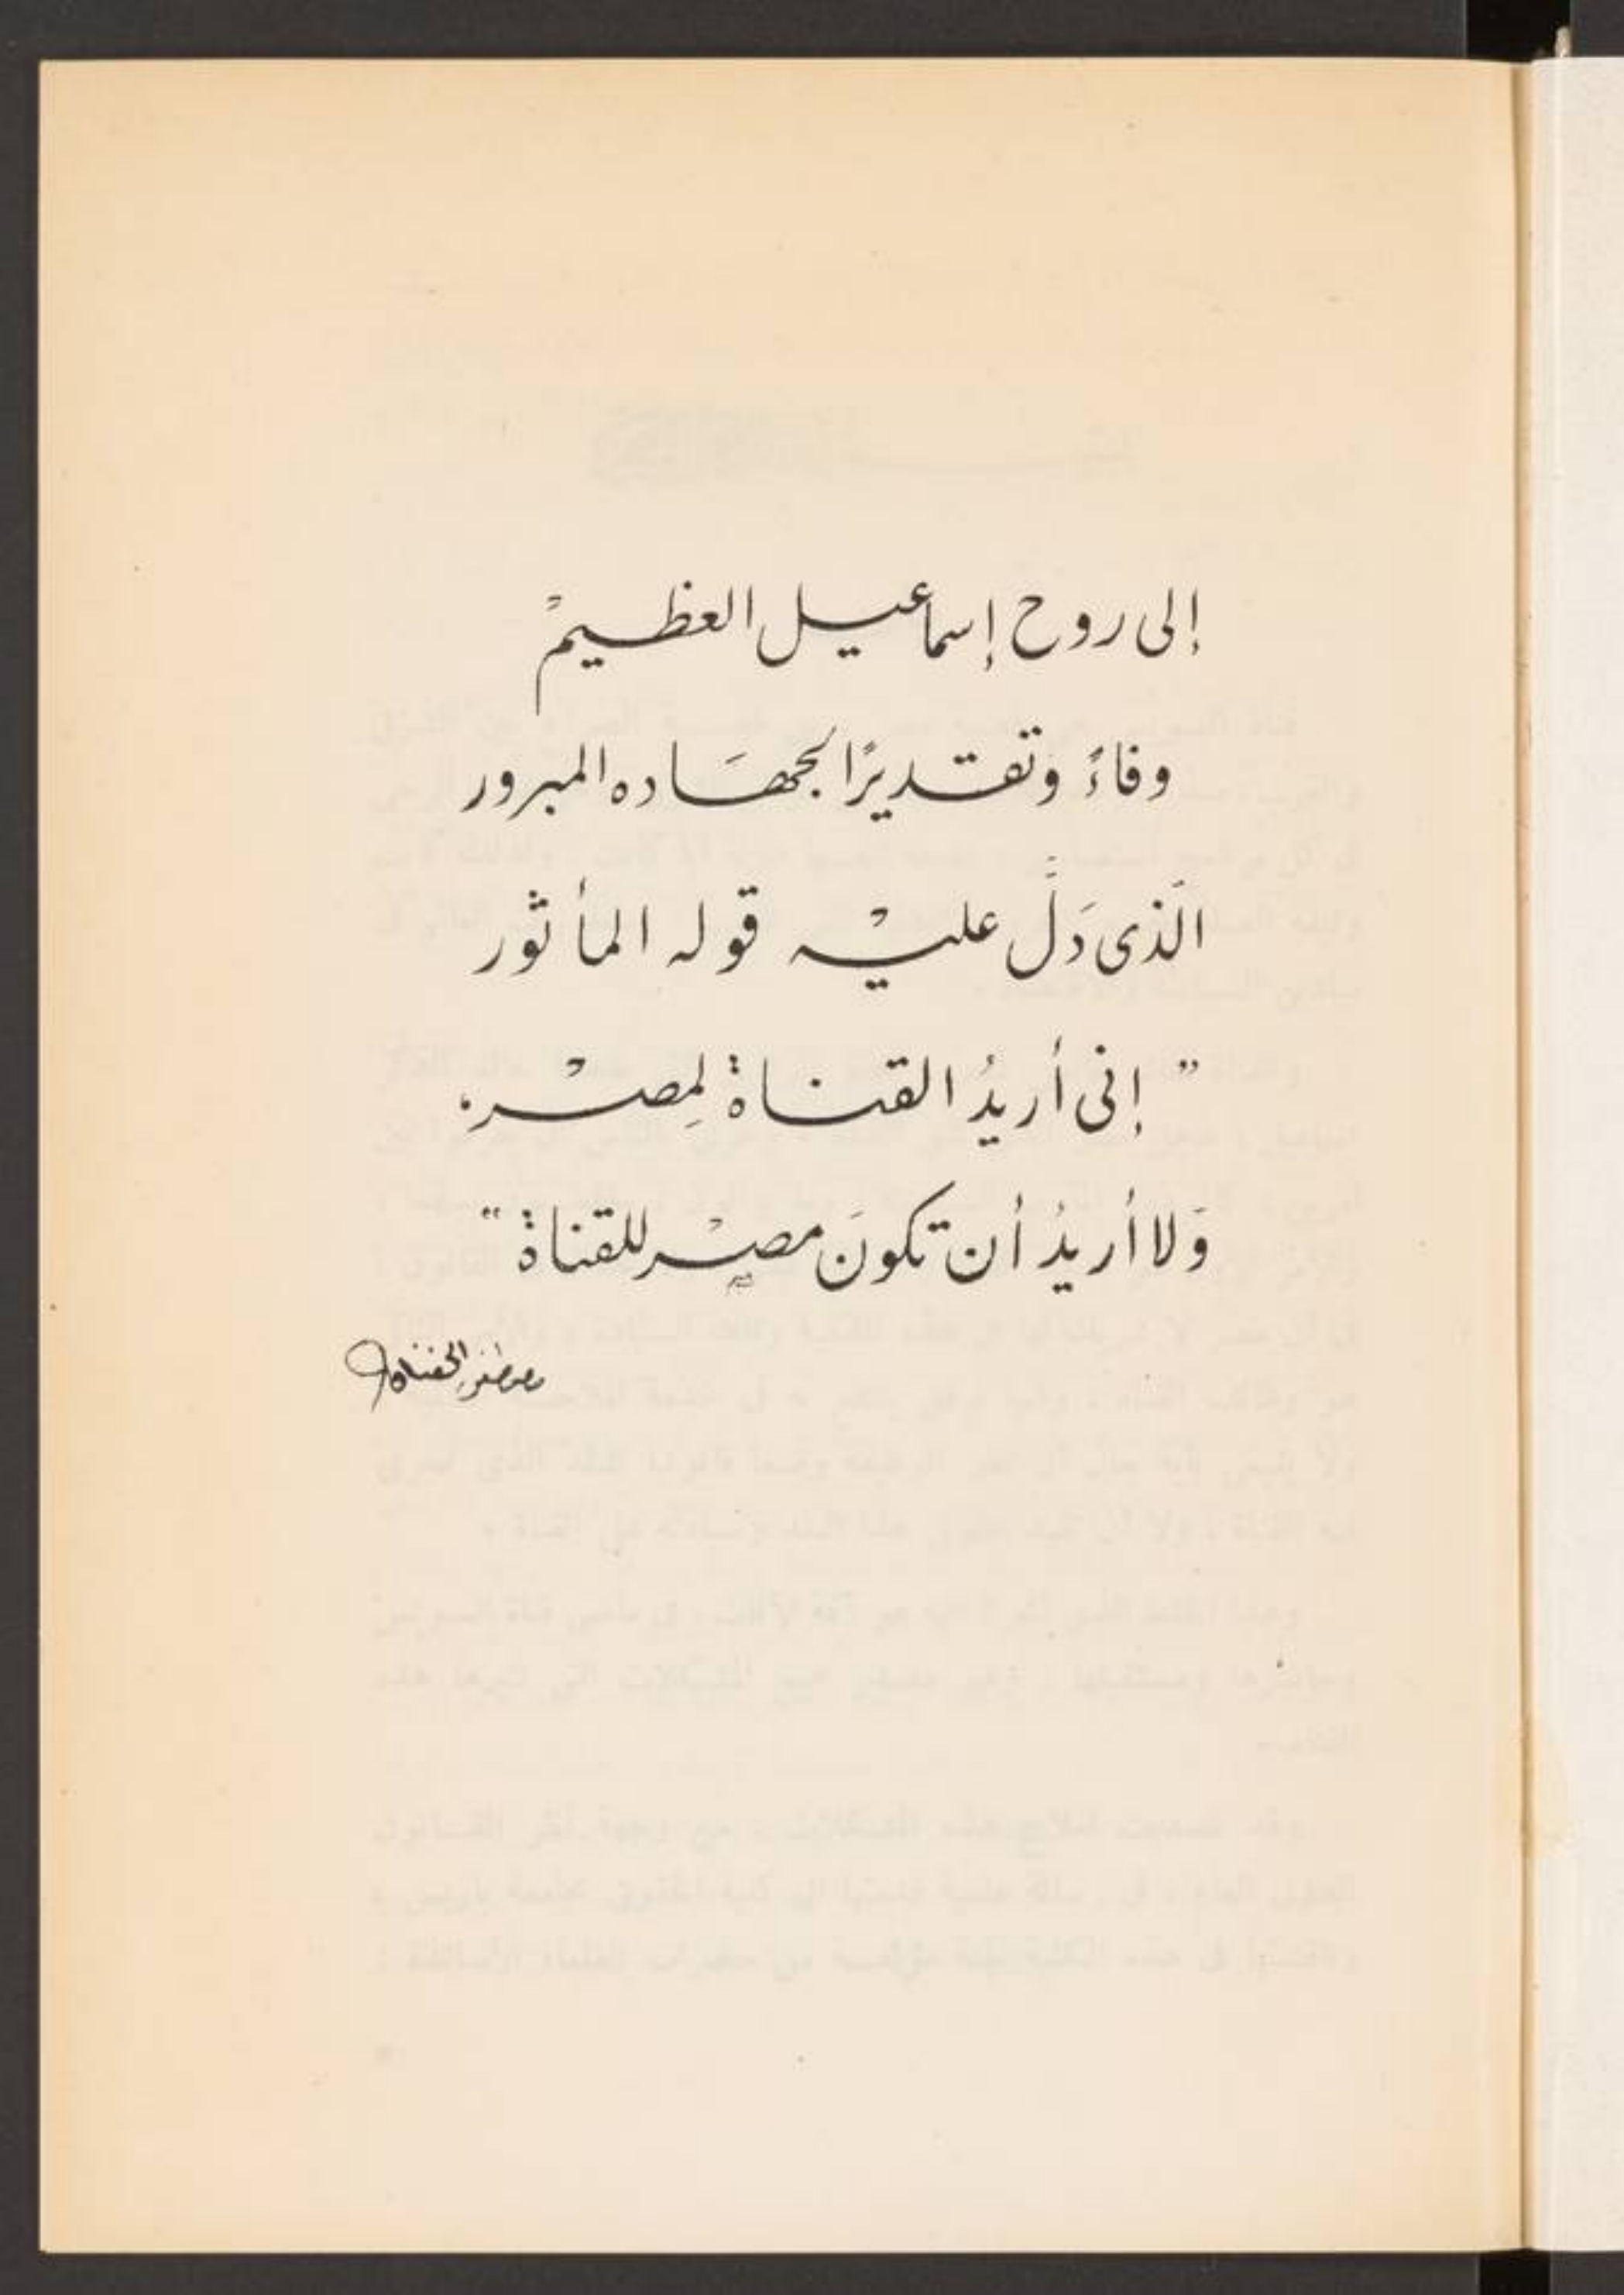 إلى روح إسماعيل العظيمْ
وفاءً وَتقديرًا لجهَاده المبرور
الّذى دَلَّ عليْه قوله المأثور
" إنى أُريدُ القناة لِمصْر.
وَلا أُريدُ أن تكونَ مصْر للقناة "
مصطفى الحفناوى